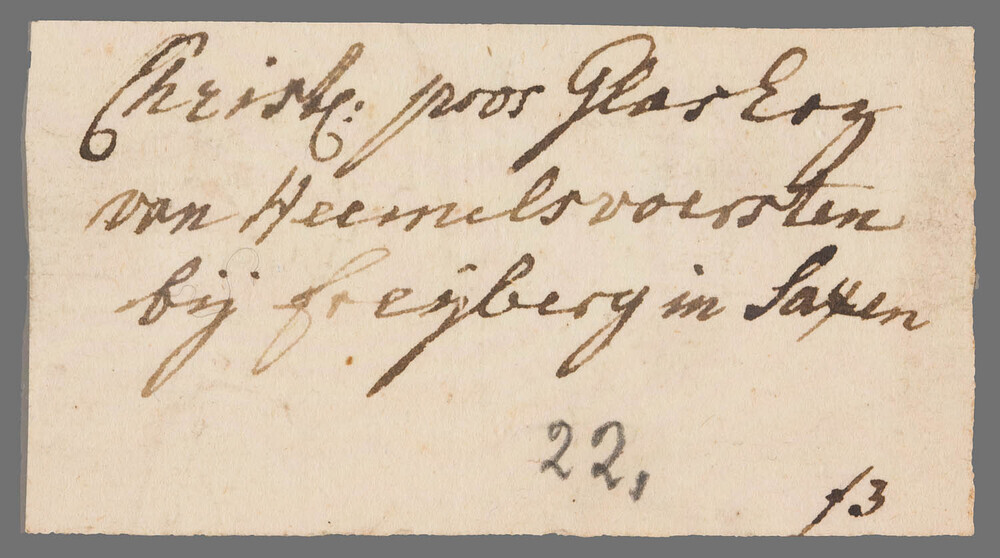 Christ: poos Glas Erz
van Heemelsvoersten
bij freijberg in Saxen
22,
f 3